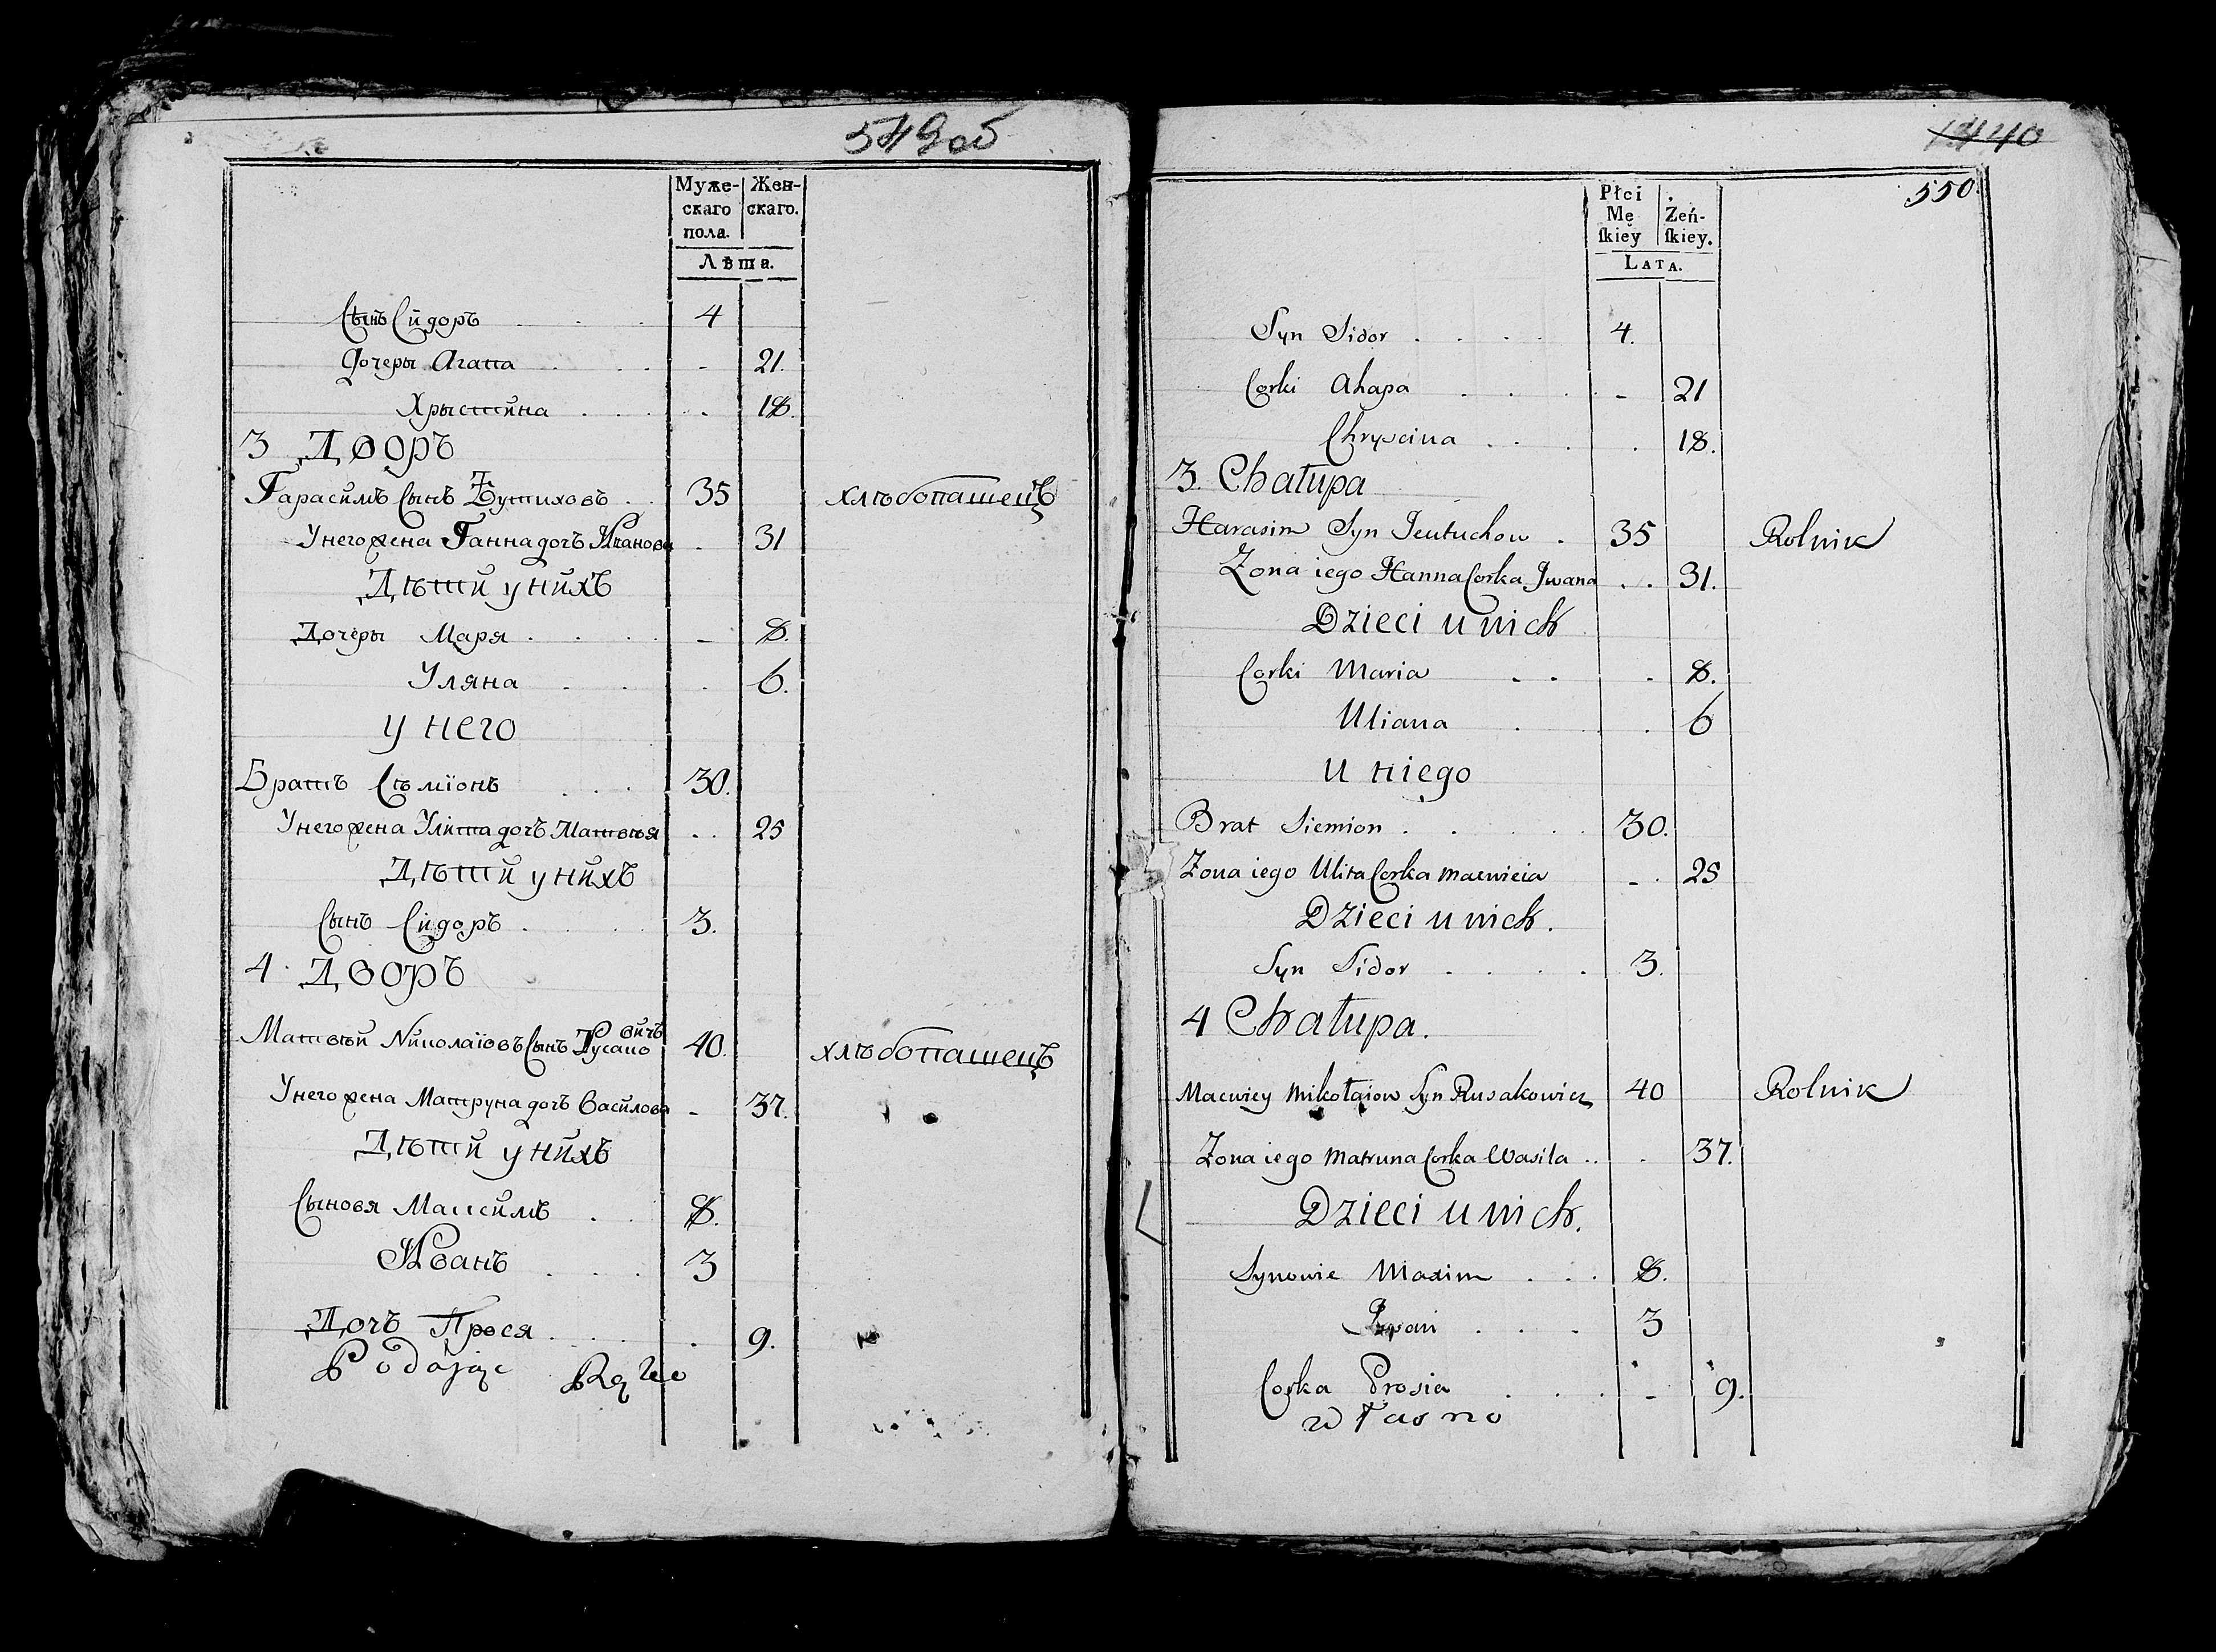 549об
Муже- Жен-
скаго скаго.
пола.
Лѣта.
Сынъ Сидоръ . . . 4
Дочеры Агапа . . . - 21.
Хрыстина . . . . 18.
3 Дворъ
Гарасимъ Сынъ Ѣвтиховъ . . 35 хлѣбопашецъ
У него жена Ганна дочъ Иванова . 31
Дѣти у нихъ
Дочеры Маря . . . . - 8.
Уляна . . . . 6.
у него
Братъ Сѣмiонъ . . . 30.
У него жена Улита дочъ Матвѣя . . 25
Дѣти у нихъ
Сынъ Сидоръ . . . . 3.
4. Дворъ
Матвѣй Николаiовъ Сынъ Русаковичъ 40. хлѣбопашецъ
У него жена Матруна дочъ Василова - 37.
Дѣти у нихъ
Сыновя Максимъ . . 8.
Иванъ . . . 3
Дочъ Прося . . . . . 9.
Podając Rękę
1440
550
Płci Żeń-
Mę skiey.
skiey
LATA.
Syn Sidor . . . . 4.
Corki Ahapa . . . . - 21
Chryscina . . . . 18.
3. Chałupa
Harasim Syn Jeutuchow . 35 Rolnik
Zona iego Hanna Corka Jwana . . 31.
Dzieci u nich
Corki Maria . . . 8.
Uliana . . . 6
u niego
Brat Siemion . . . . 30.
Zona iego Ulita Corka Macwieia - . 25
Dzieci u nich.
Syn Sidor . . . . 3.
4 Chałupa.
Macwiey Mikołaiow Syn Rusakowicz 40 Rolnik
Zona iego Matruna Corka Wasila .. . 37.
Dzieci u nich.
Synowie Maxim . . . 8.
Jwan . . . 3
Corka Prosia . . . - 9.
własno